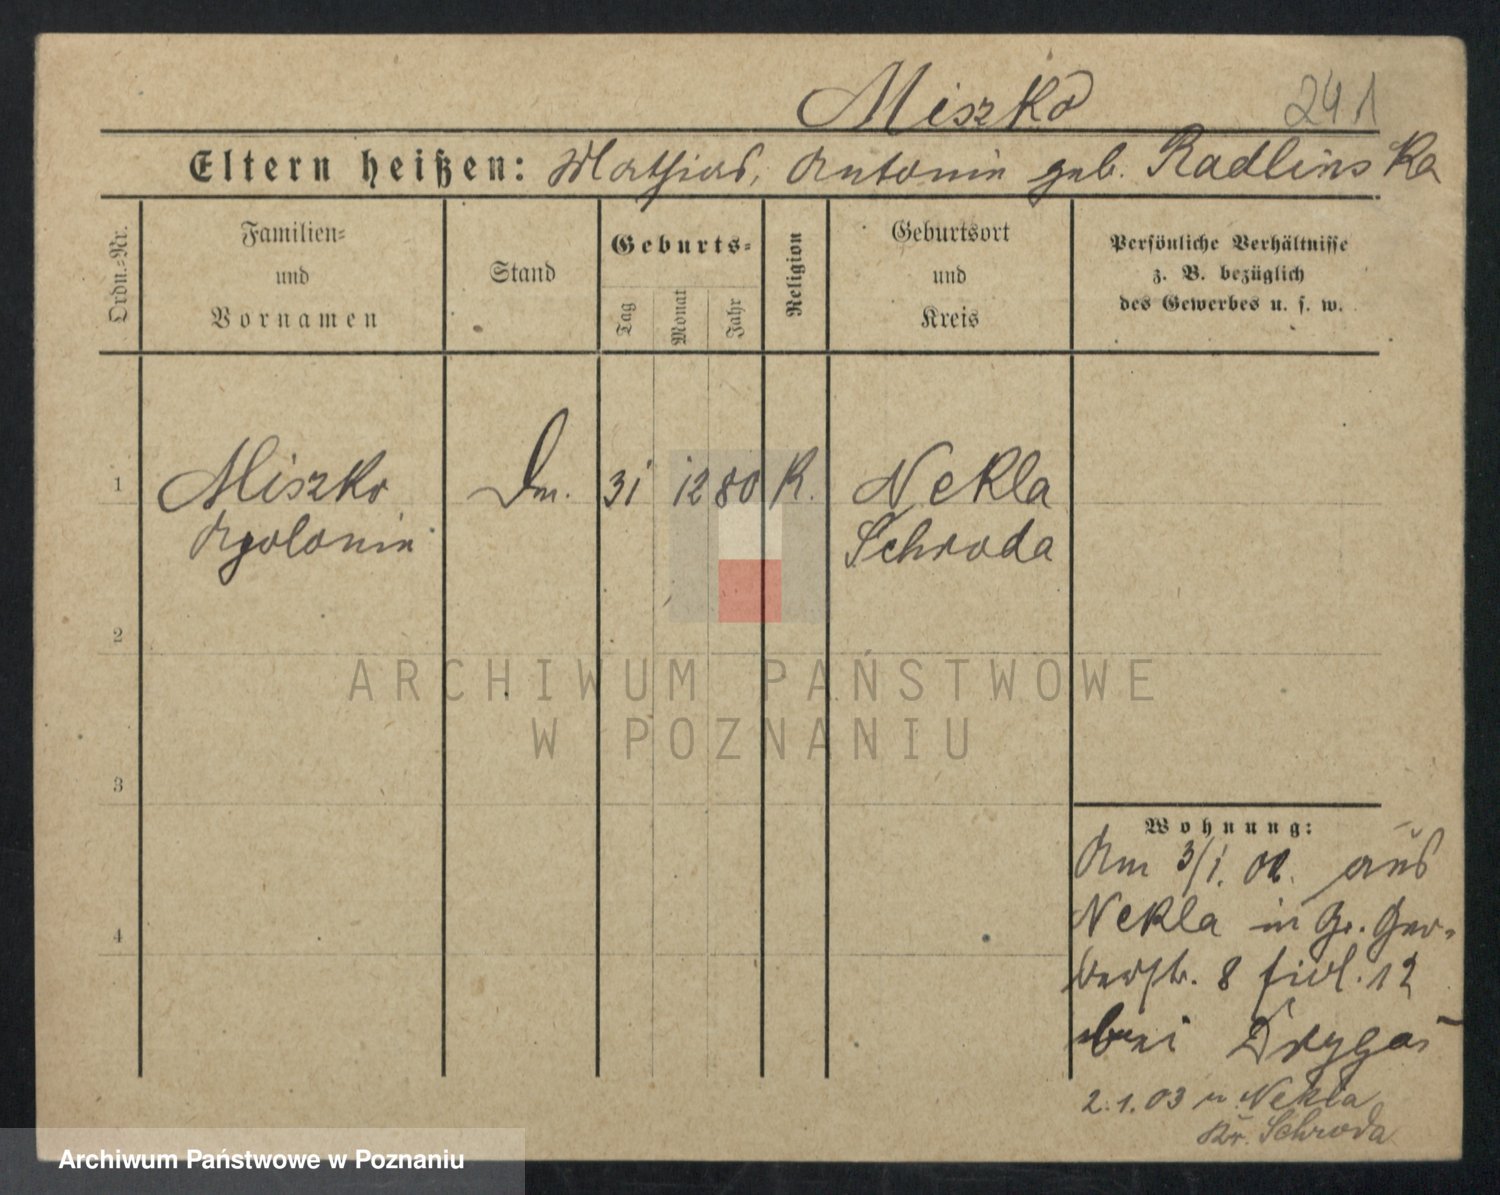 Miszko
241
Eltern heißen: Mathias, Antonin geb. Radlinska
Ordn.-Nr.
Familien-
und
Vornamen
Stand
Geburts-
Tag
Monat
Jahr
Religion
Geburtsort
und
Kreis
Persönliche Verhältnisse
z. B. bezüglich
des Gewerbes u. s. w.
1
Miszko
Apolonin
Dm.
31 12 80
K.
Nekla
Schroda
2
ARCHIWUM PAŃSTWOWE
W POZNANIU
3
4
Wohnung:
Am 3/1. 02. aus
Nekla in Gr. Ger-
berstr. 8 12
bei Drygas
2.1.03 n. Nekla
Kr. Schroda
Archiwum Państwowe w Poznaniu